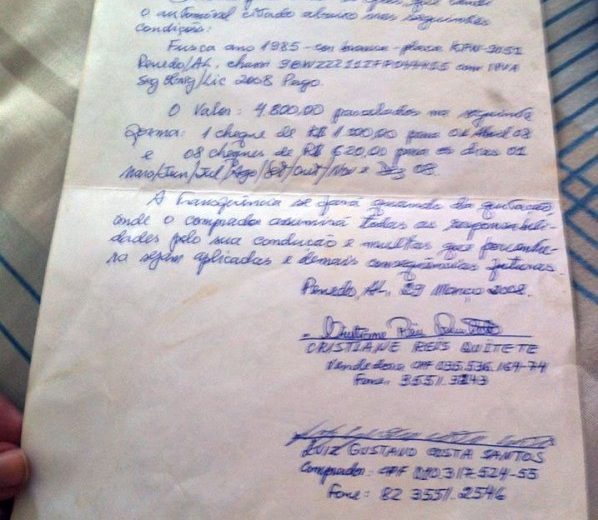 o automóvel citado abaixo nas seguintes
condições:
Fusca ano 1985 - cor branca - placa KFW-3051
Penedo/AL, chassi com IPVA
Seg Obrig/Lic 2008 Pago.
O Valor: 4.800,00 parcelados na seguinte
forma: 1 cheque de R$ para 01 Abril 08
e 08 cheques de R$ 620,00 para os dias 01
Maio/Jun/Jul/Ago/Set/Out/Nov e Dez 08.
A transferência se fará quando da quitação,
onde o comprador assumirá todas as responsabili-
dades pelo sua condução e multas que porventu-
ra sejam aplicadas e demais consequências futuras.
Penedo, AL, 29 Março 2008.
CRISTIANE REIS QUITETE
Vendedora CPF 035.536.164-74
Fone: 3551.3243
LUIZ GUSTAVO COSTA SANTOS
Comprador: CPF 010.317.524-55
Fone: 82 3551.2546